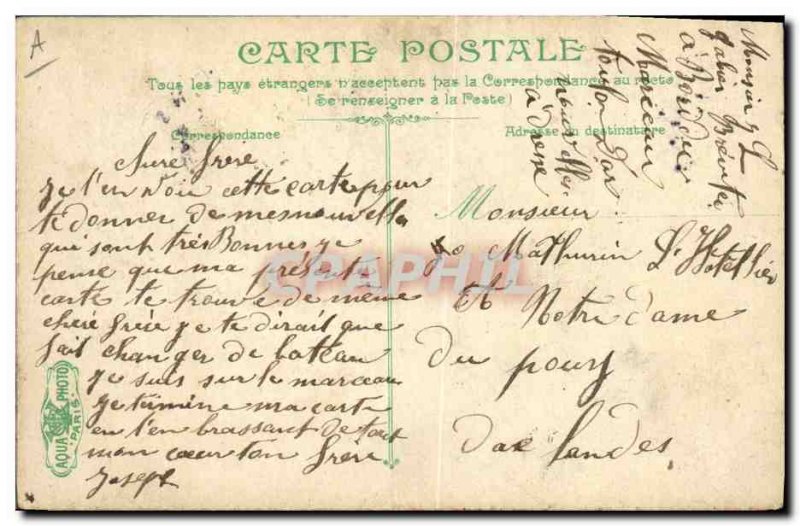 A
CARTE POSTALE
Tous les pays étrangers n'acceptent pas la Correspondance au recto
(Se renseigner à la Poste)
Correspondance
Adresse du destinataire
chere frere
je l'en voie cette carte pour
te donner de mes nouvelle
qui sont très Bonnes je
pense que ma présente
carte te trouve de meme
chere frère je te dirait que
fait changer de bateau
je suis sur le marceau
je termine ma carte
en t'en brassant de tout
mon coeur ton frere
Joseph
Monsieur
Mathurin L'Hotellier
Notre dame
du pouy
dax landes
Monsieur J L
Brévité
à Bord du
Marceau
toulon Var
à drese
AQUA PHOTO
PARIS
CPAPHIL